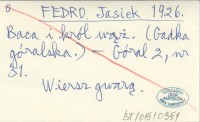 FEDRO Jasiek 1926.
Baca i król wąż. (Gadka
góralska.) — Góral 2, nr
31.
Wiersz gwarą.